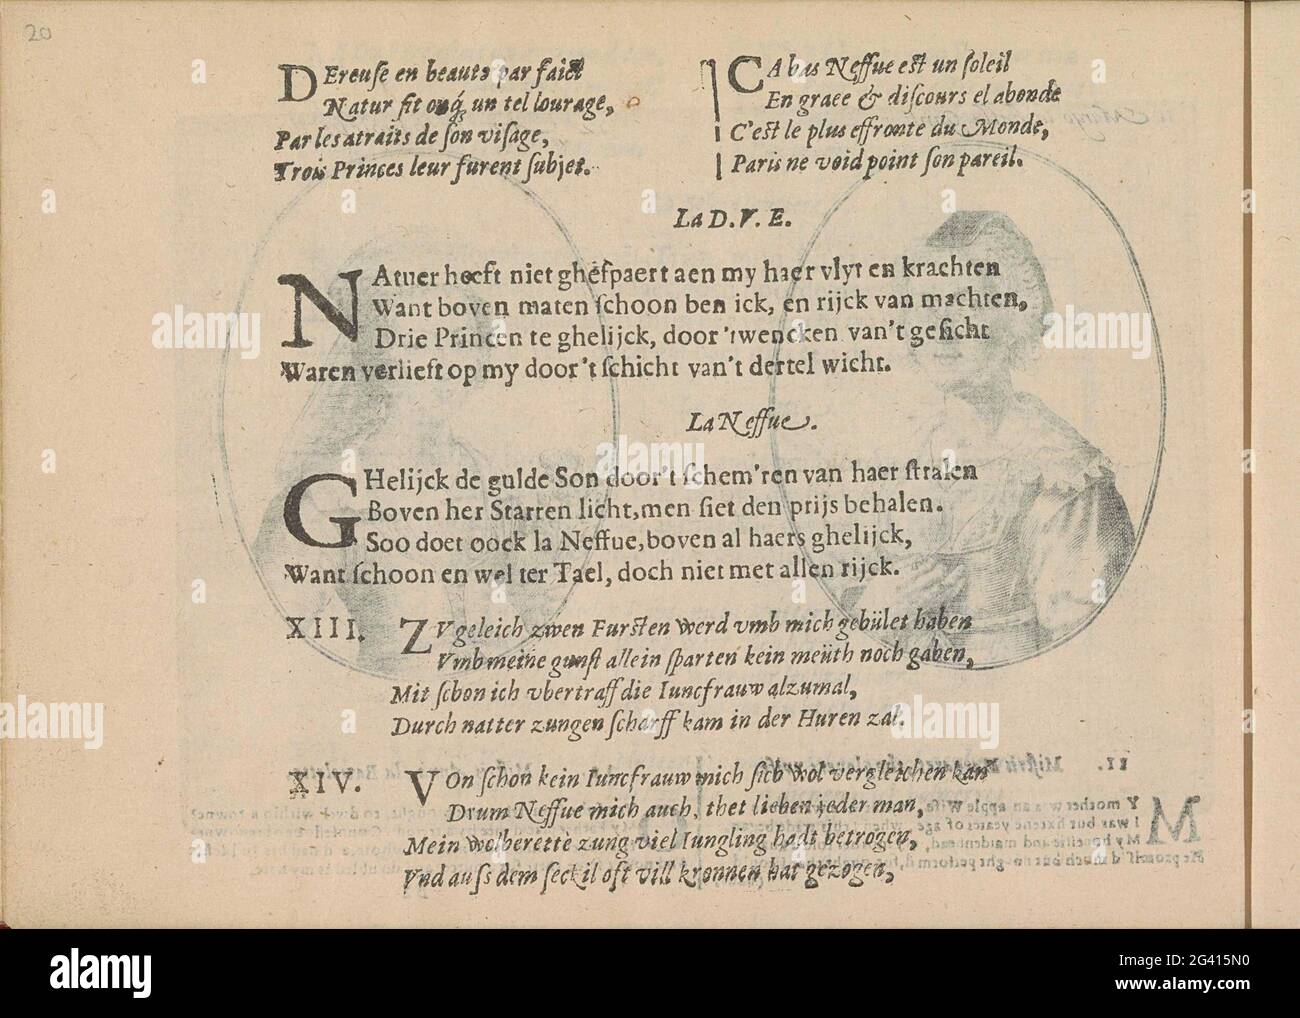 20
DEreuse en beaute par faict
Natur fit onq́ un tel lourage,
Par les atraits de son visage,
Trois Princes leur furent subjet.
CA bas Neffue est un soleil
En graee & discours el abonde
C'est le plus effronte du Monde,
Paris ne void point son pareil.
La D. V. E.
NAtuer heeft niet ghespaert aen my haer vlyt en krachten
Want boven maten schoon ben ick, en rijck van machten,
Drie Princen te ghelijck, door 'twencken van't gesicht
Waren verlieft op my door't schicht van't dertel wicht.
La Neffue.
GHelijck de gulde Son door't schem'ren van haer stralen
Boven her Starren licht, men siet den prijs behalen.
Soo doet oock la Neffue, boven al haers ghelijck,
Want schoon en wel ter Tael, doch niet met allen rijck.
XIII. ZVgeleich zwen Fursten werd vmb mich gebület haben
Vmb meine gunst allein sparten kein meüth noch gaben,
Mit schon ich vbertraff die Iuncfrauw alzumal,
Durch natter zungen scharff kam in der Huren zal.
XIV. VOn schon kein Iuncfrauw mich sich wol vergleichen kan
Drum Neffue mich auch, thet lieben jeder man,
Mein wolberette zung viel Iungling hadt betrogen,
Vnd auss dem seckil oft vill kronnen hat gezogen,
alamy
Image ID: 2G415N0
www.alamy.com